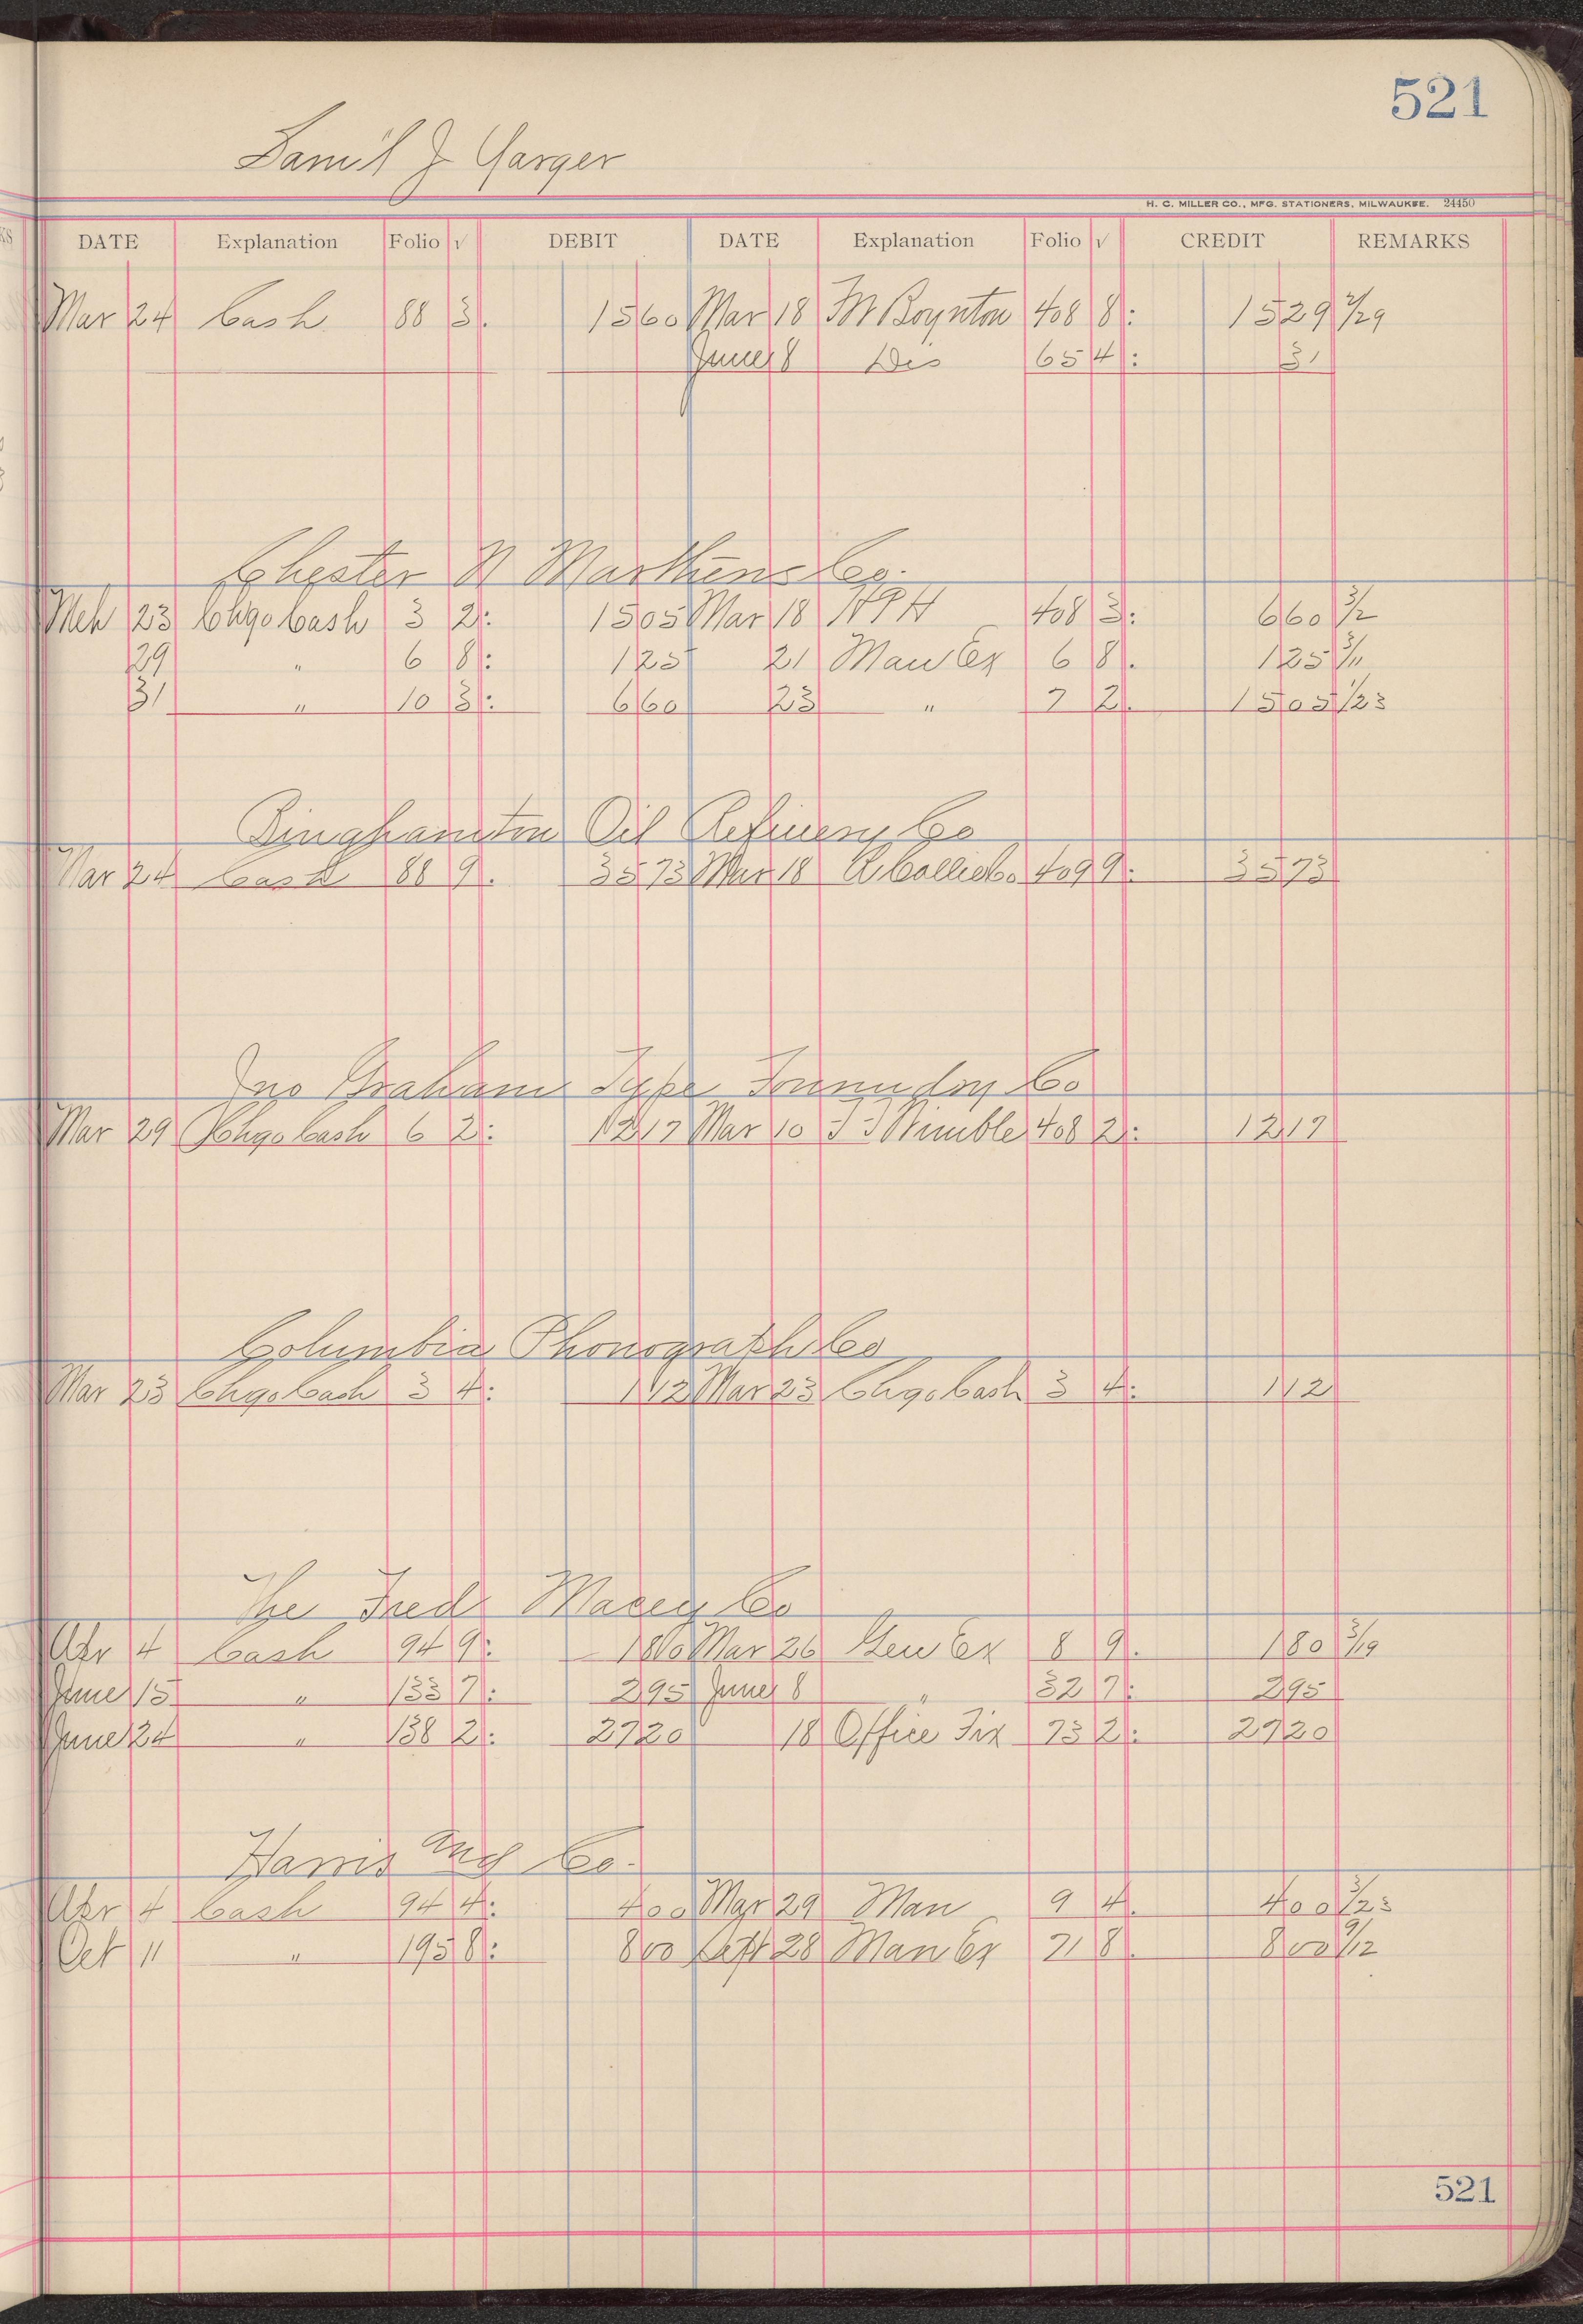 521
Sam'l J Yarger
H. C. MILLER CO., MFG. STATIONERS, MILWAUKEE. 24450
DATE Explanation Folio √ DEBIT DATE Explanation Folio √ CREDIT REMARKS
Mar 24 Cash 88 3. 15 60 Mar 18 Boynton 408 8: 15 29 2/29
June 8 Dis 65 4: 31
Chester N Marthens Co.
Mch 23 Chgo Cash 3 2: 15 05 Mar 18 408 3: 6 60 3/2
29 " 6 8: 1 25 21 Man Ex 6 8. 1 25 3/11
31 " 10 3: 6 60 23 " 7 2. 15 05 1/23
Binghamton Oil Refinery Co
Mar 24 Cash 88 9. 35 73 Mar 18 409 9: 35 73
Jno Graham Type Founndry Co
Mar 29 Chgo Cash 6 2: 12 17 Mar 10 Wimble 408 2: 12 17
Columbia Phonograph Co
Mar 23 Chgo Cash 3 4: 1 12 Mar 23 Chgo Cash 3 4: 1 12
The Fred Macey Co
Apr 4 Cash 94 9: 1 80 Mar 26 Gen Ex 8 9. 1 80 3/19
June 15 " 133 7: 2 95 June 8 " 32 7: 2 95
June 24 " 138 2: 27 20 18 Office Fix 73 2: 27 20
Harris Eng Co.
Apr 4 Cash 94 4: 4 00 Mar 29 Man 9 4. 4 00 3/23
Oct 11 " 195 8: 8 00 Sept 28 Man Ex 21 8. 8 00 9/12
521